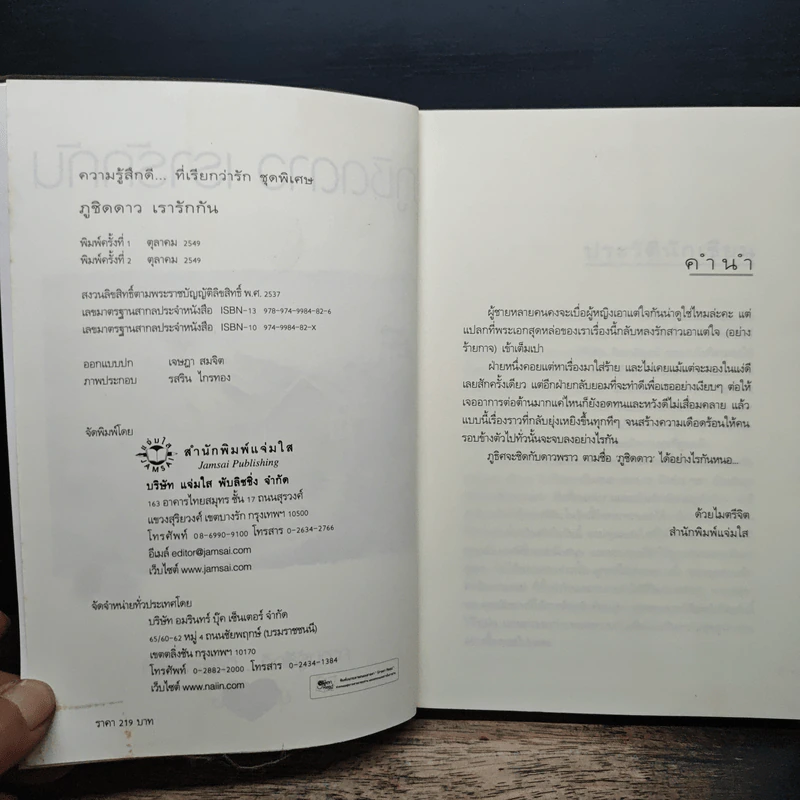 ความรู้สึกดี... ที่เรียกว่ารัก ชุดพิเศษ
ภูชิดดาว เรารักกัน
พิมพ์ครั้งที่ 1 ตุลาคม 2549
พิมพ์ครั้งที่ 2 ตุลาคม 2549
สงวนลิขสิทธิ์ตามพระราชบัญญัติลิขสิทธิ์ พ.ศ. 2537
เลขมาตรฐานสากลประจำหนังสือ ISBN-13 978-974-9984-82-6
เลขมาตรฐานสากลประจำหนังสือ ISBN-10 974-9984-82-X
ออกแบบปก เจษฎา สมจิต
ภาพประกอบ รสริน ไกรทอง
จัดพิมพ์โดย
สำนักพิมพ์แจ่มใส
Jamsai Publishing
บริษัท แจ่มใส พับลิชชิ่ง จำกัด
163 อาคารไทยสมุทร ชั้น 17 ถนนสุรวงศ์
แขวงสุริยวงศ์ เขตบางรัก กรุงเทพฯ 10500
โทรศัพท์ 08-6990-9100 โทรสาร 0-2634-2766
อีเมล์ editor@jamsai.com
เว็บไซต์ www.jamsai.com
จัดจำหน่ายทั่วประเทศโดย
บริษัท อมรินทร์ บุ๊ค เซ็นเตอร์ จำกัด
65/60-62 หมู่ 4 ถนนชัยพฤกษ์ (บรมราชชนนี)
เขตตลิ่งชัน กรุงเทพฯ 10170
โทรศัพท์ 0-2882-2000 โทรสาร 0-2434-1384
เว็บไซต์ www.naiin.com
ราคา 219 บาท
คำนำ
ผู้ชายหลายคนคงจะเบื่อผู้หญิงเอาแต่ใจกันน่าดูใช่ไหมล่ะคะ แต่
แปลกที่พระเอกสุดหล่อของเราเรื่องนี้กลับหลงรักสาวเอาแต่ใจ (อย่าง
ร้ายกาจ) เข้าเต็มเปา
ฝ่ายหนึ่งคอยแต่หาเรื่องมาใส่ร้าย และไม่เคยแม้แต่จะมองในแง่ดี
เลยสักครั้งเดียว แต่อีกฝ่ายกลับยอมที่จะทำดีเพื่อเธออย่างเงียบๆ ต่อให้
เจออาการต่อต้านมากแค่ไหนก็ยังอดทนและหวังดีไม่เสื่อมคลาย แล้ว
แบบนี้เรื่องราวที่กลับยุ่งเหยิงขึ้นทุกทีๆ จนสร้างความเดือดร้อนให้คน
รอบข้างตัวไปทั่วนั้นจะจบลงอย่างไรกัน
ภูริศจะชิดกับดาวพราว ตามชื่อ 'ภูชิดดาว' ได้อย่างไรกันหนอ...
ด้วยไมตรีจิต
สำนักพิมพ์แจ่มใส